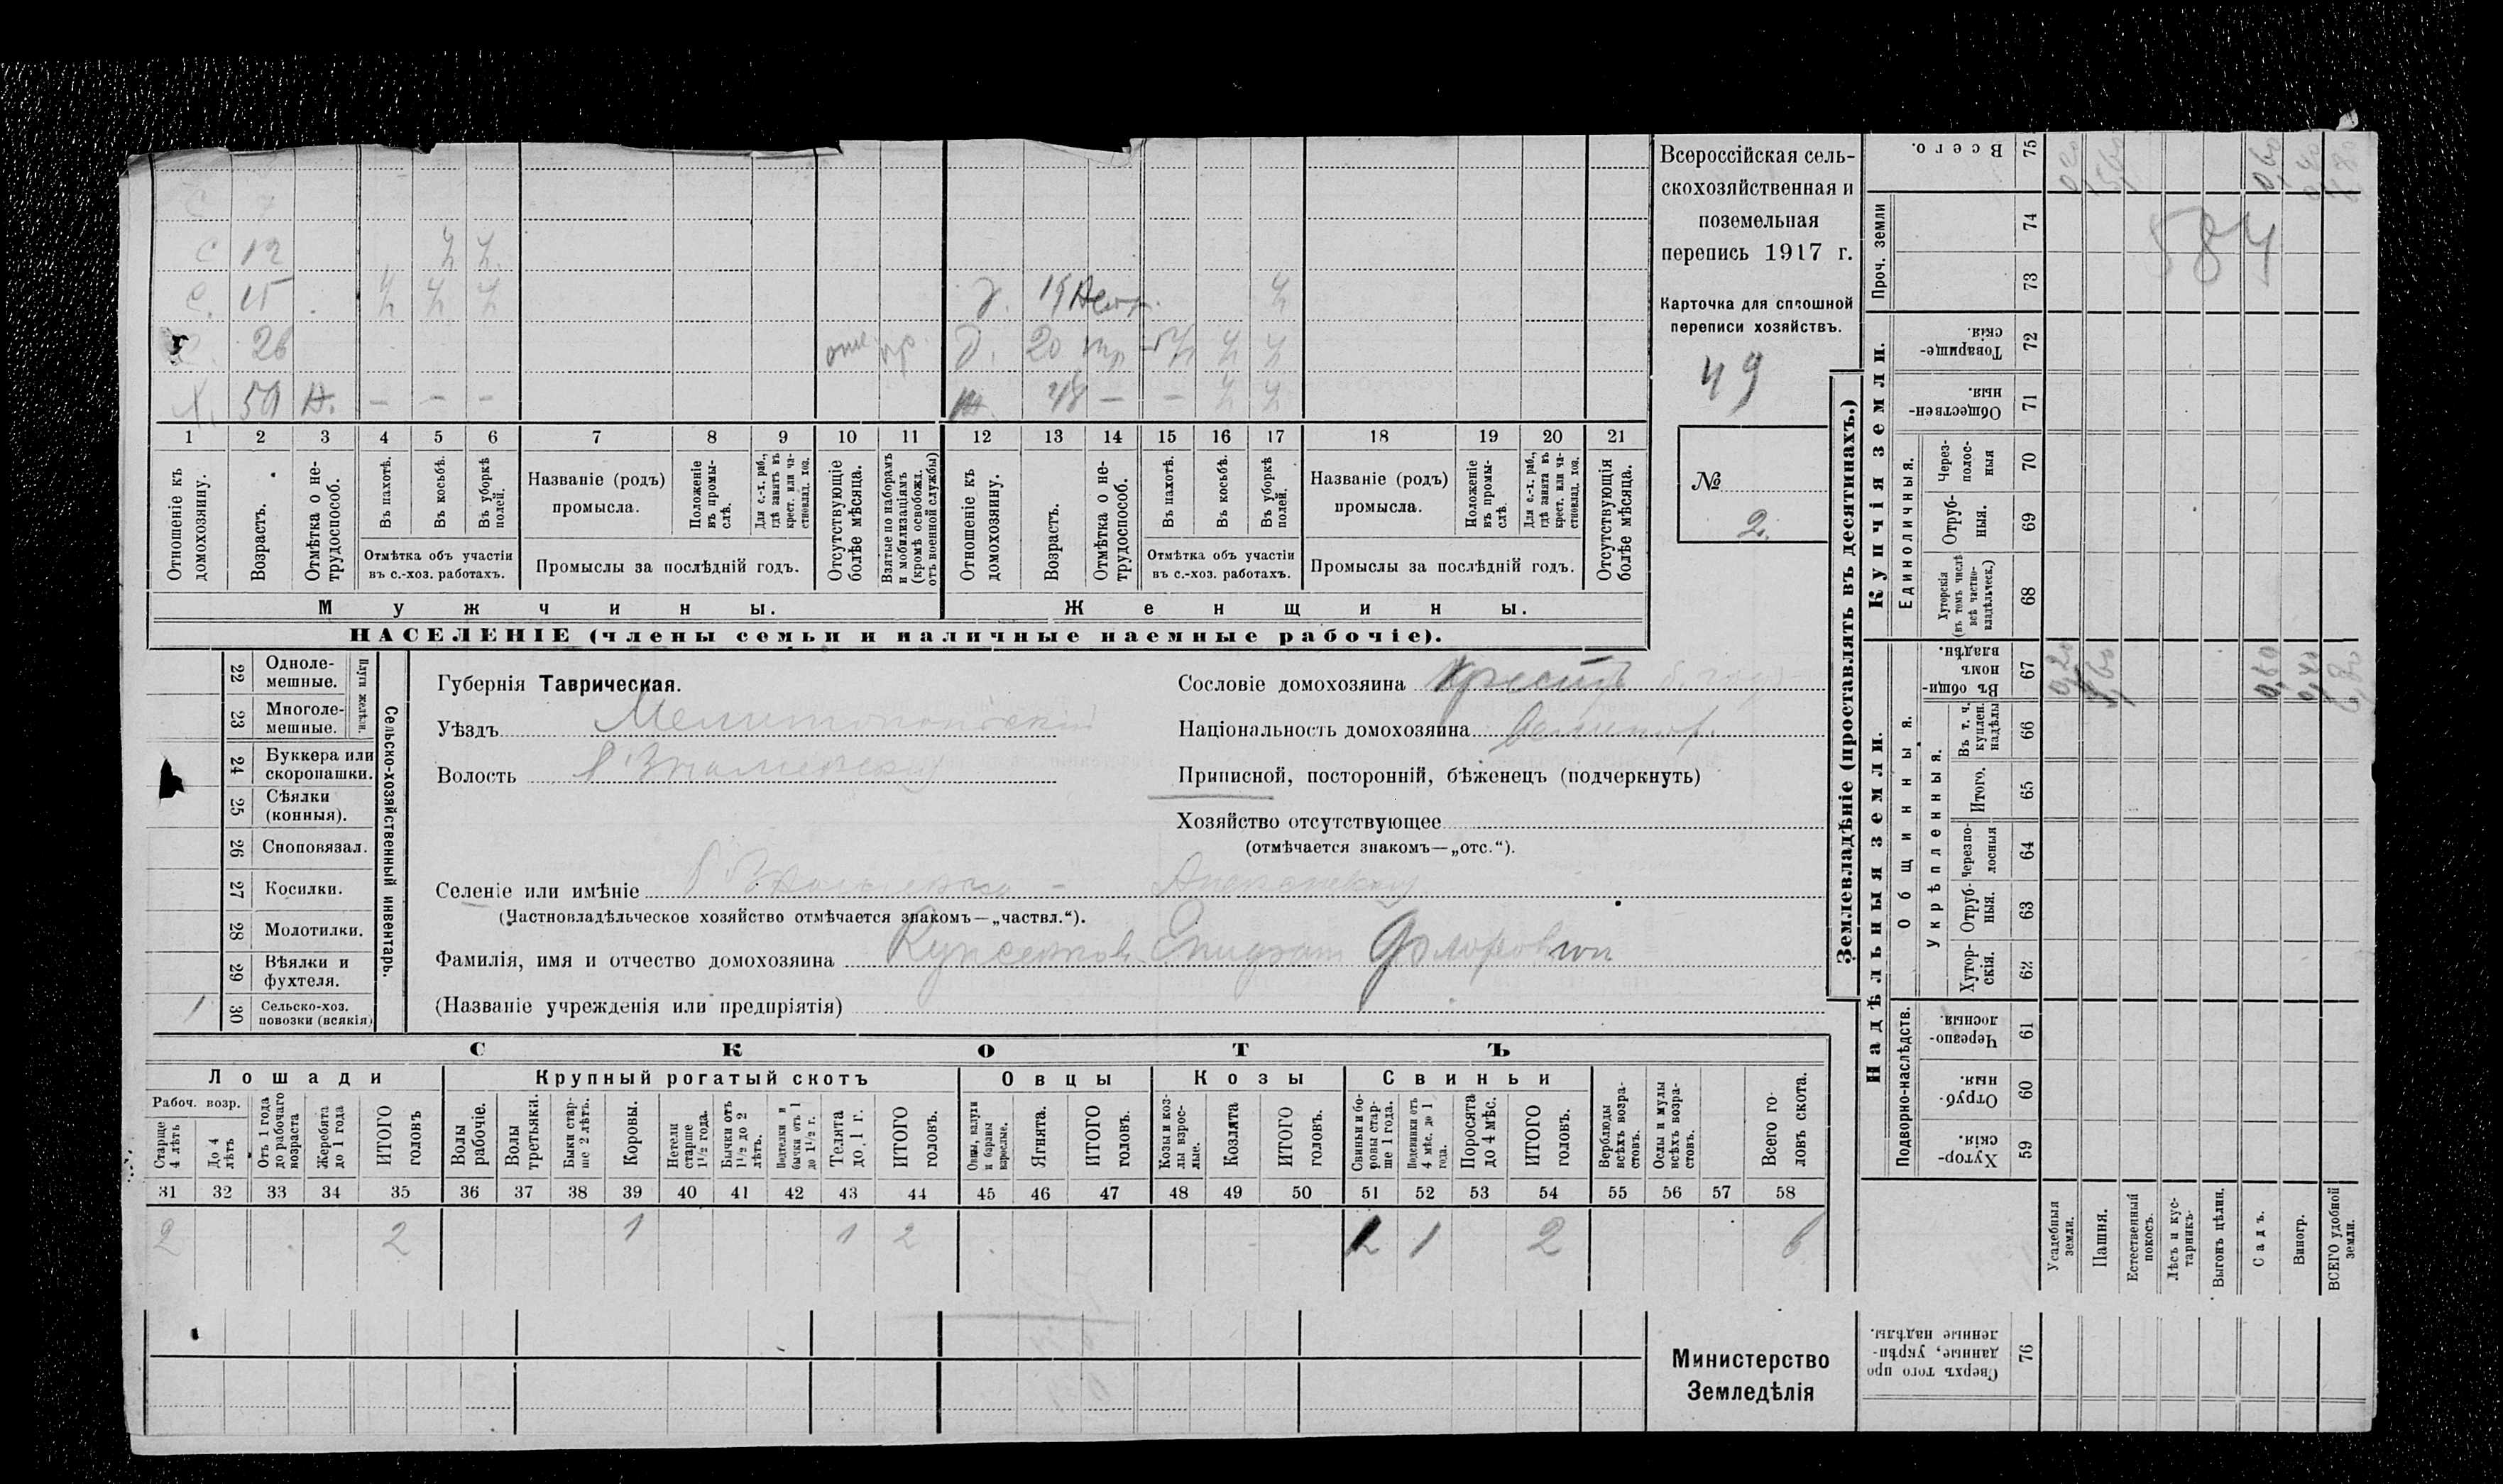 с 7
с 12 ½ ½
с. 15 ½ ½ ½ д. 19 ½
26 д. 20 ½ ½
х. 59 н. — — — 48 — — ½ ½
1 2 3 4 5 6 7 8 9 10 11 12 13 14 15 16 17 18 19 20 21
Отношеніе къ домохозяину.
Возрастъ.
Отмѣтка о нетрудоспособ.
Въ пахотѣ.
Въ косьбѣ.
Въ уборкѣ полей.
Отмѣтка объ участіи въ с.-хоз. работахъ.
Названіе (родъ) промысла.
Положеніе въ промыслѣ.
Для с.-х. раб., гдѣ занятъ въ крест. или частновлад. хоз.
Промыслы за послѣдній годъ.
Отсутствующіе болѣе мѣсяца.
Взятые по наборамъ и мобилизаціямъ (кромѣ освобожд. отъ военной службы)
Отношеніе къ домохозяину.
Возрастъ.
Отмѣтка о нетрудоспособ.
Въ пахотѣ.
Въ косьбѣ.
Въ уборкѣ полей.
Отмѣтка объ участіи въ с.-хоз. работахъ.
Названіе (родъ) промысла.
Положеніе въ промыслѣ.
Для с.-х. раб., гдѣ занята въ крест. или частновлад. хоз.
Промыслы за послѣдній годъ.
Отсутствующія болѣе мѣсяца.
Мужчины. Женщины.
НАСЕЛЕНІЕ (члены семьи и наличные наемные рабочіе).
Всероссійская сель-
скохозяйственная и
поземельная
перепись 1917 г.
Карточка для сплошной
переписи хозяйствъ.
49
№
2.
22 Одноле-
мешные.
23 Многоле-
мешные.
Плуги желѣзн.
24 Буккера или
скоропашки.
25 Сѣялки
(конныя).
26 Сноповязал.
27 Косилки.
28 Молотилки.
29 Вѣялки и
фухтеля.
1 30 Сельско-хоз.
повозки (всякія)
Сельско-хозяйственный инвентарь.
Губернія Таврическая.
Уѣздъ Мелитопольскій
Волость Знаменская
Сословіе домохозяина крест
Національность домохозяина
Приписной, посторонній, бѣженецъ (подчеркнуть)
Хозяйство отсутствующее
(отмѣчается знакомъ—„отс.“).
Селеніе или имѣніе
(Частновладѣльческое хозяйство отмѣчается знакомъ—„частвл.“).
Фамилія, имя и отчество домохозяина
(Названіе учрежденія или предпріятія)
СКОТЪ
Лошади Крупный рогатый скотъ Овцы Козы Свиньи
Рабоч. возр.
Старще 4 лѣтъ
До 4 лѣтъ
Отъ 1 года до рабочаго возраста
Жеребята до 1 года
ИТОГО головъ
Волы рабочіе.
Волы третьяки.
Быки старше 2 лѣтъ.
Коровы.
Нетели старше 1½ года.
Бычки отъ 1½ до 2 лѣтъ.
Подтелки и бычки отъ 1 до 1½ г.
Телята до 1 г.
ИТОГО головъ.
Овцы, валухи и бараны взрослые.
Ягнята.
ИТОГО головъ.
Козы и козлы взрослые.
Козлята
ИТОГО головъ.
Свиньи и боровы старше 1 года.
Подсвинки отъ 4 мѣс. до 1 года.
Поросята до 4 мѣс.
ИТОГО головъ.
Верблюды всѣхъ возрастовъ.
Ослы и мулы всѣхъ возрастовъ.
Всего головъ скота.
31 32 33 34 35 36 37 38 39 40 41 42 43 44 45 46 47 48 49 50 51 52 53 54 55 56 57 58
2 2 1 1 2 1 2 6
Министерство
Земледѣлія
Землевладѣніе (проставлять въ десятинахъ.)
Надѣльныя земли. Купчія земли. Проч. земли
Подворно-наслѣдств.
Общинныя.
Укрѣпленныя.
Единоличныя.
Всего. 75
74
73
Товарищескія. 72
Общественныя. 71
Черезполосныя 70
Отрубныя. 69
Хуторскія (въ томъ числѣ всѣ частновладѣльческ.) 68
Въ общинномъ владѣн. 67
Въ т. ч. куплен. надѣлы 66
Итого. 65
Черезполосныя 64
Отрубныя. 63
Хуторскія. 62
Черезполосныя. 61
Отрубныя. 60
Хуторскія. 59
584
0,20 0,60 0,40
Усадебныя земли.
Пашня.
Естественный покосъ.
Лѣсъ и кустарникъ.
Выгонъ цѣлин.
Садъ.
Виногр.
ВСЕГО удобной земли.
Сверхъ того проданные, укрѣпленные надѣлы. 76